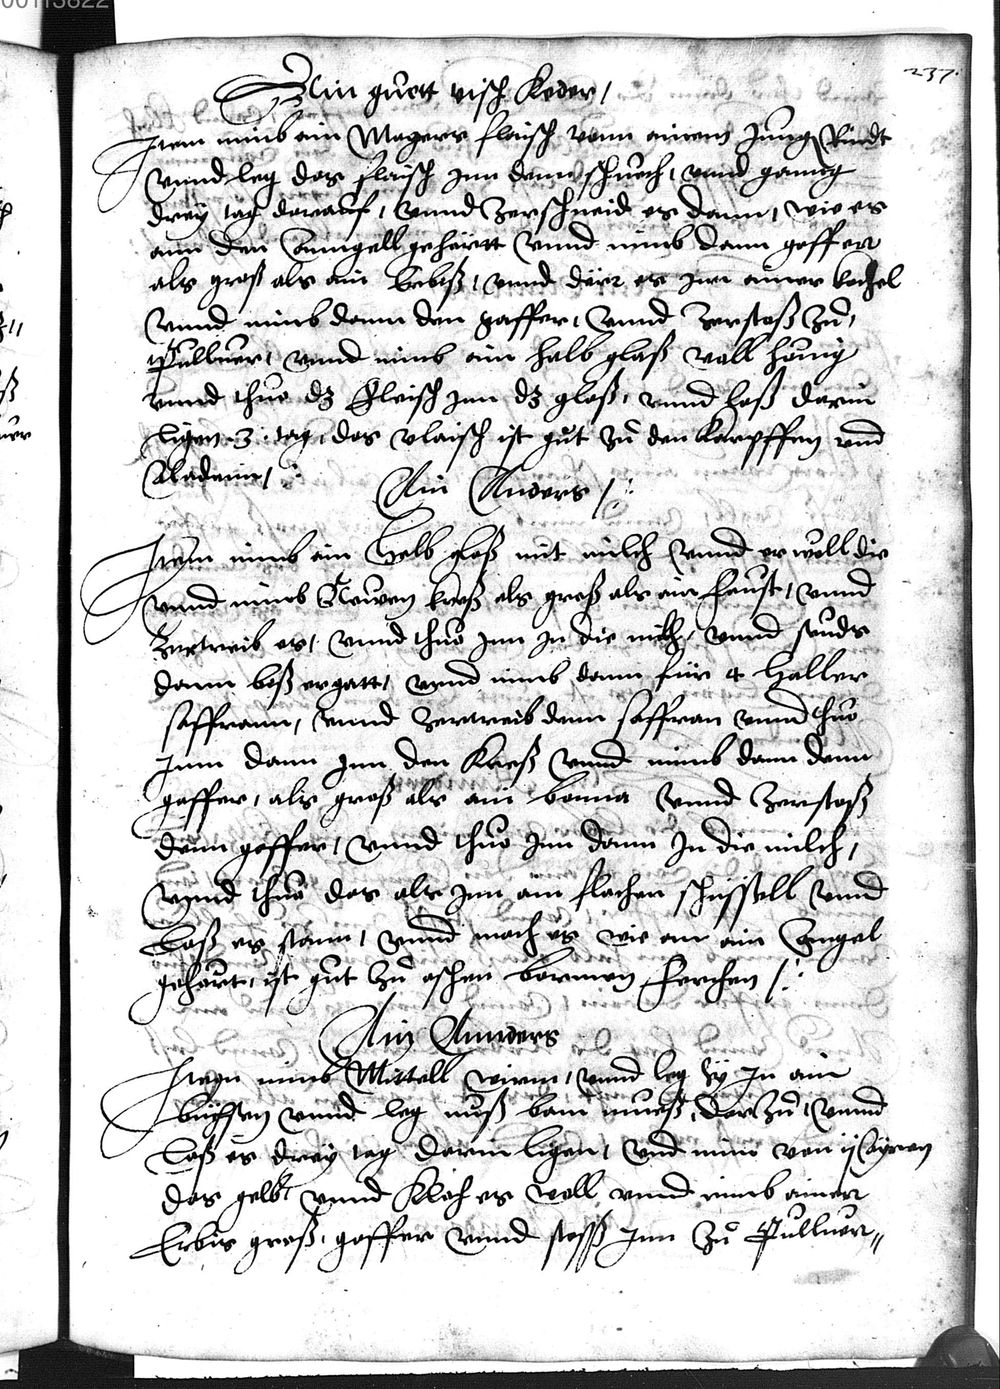 237.
Ain guett visch Keder /
Item nimb ain Magers flaisch vonn ainem Jung Rindt
vnnd leg das flaisch jnn denn schuech, vnnd ganng
drey tag darauf, vnnd zerschneid es dann, wie es
ann den Anngell gehörtt vnnd nimb dann gaffer
als groß als ain Erbiß, vnnd derr es jnn ainer kachel
vnnd nimb dann den gaffer, vnnd zerstoß zu
Pulluer, vnnd nimb ain halb glaß voll honig
vnnd thue dz fleisch jnn dz glaß, vnnd laß darin
ligen 3 tag, das vlaisch ist gut zu den Karpffen vnd
Aladenn /
Ain Anders /
Item nimb ain halb glaß mit milch vnnd erwoll die
vnnd nimb Newen keß als groß als ain faust, vnnd
zertreib es, vnnd thue jnn jn die milch, vnnd seuds
dann biß ergatt, vnnd nimb dann für 4 haller
saffrann, vnnd zertreib denn saffran vnnd thue
jnnn dann jnn den Keeß vnnd nimb dann denn
gaffer, als groß als ain bonna vnnd zerstoß
denn gaffer, vnnd thue jnn dann jn die milch,
vnnd thue das als jnn ain flachen schissell vnnd
laß es stann, vnnd mach es wie an ain Angel
gehört, ist gut zu aschen barmen ferchen /
Ain Annders
Item nimb Mittell wirm, vnnd leg sy jn ain
bichssen vnnd leg nuß bam mueß darzu, vnnd
laß es drey tag darin ligen, vnd nim von ij Ayren
das gelb, vnnd Klopf es woll vnnd nimb ainer
Erbis groß, gaffer vnnd stoß jnn zu Pulluer